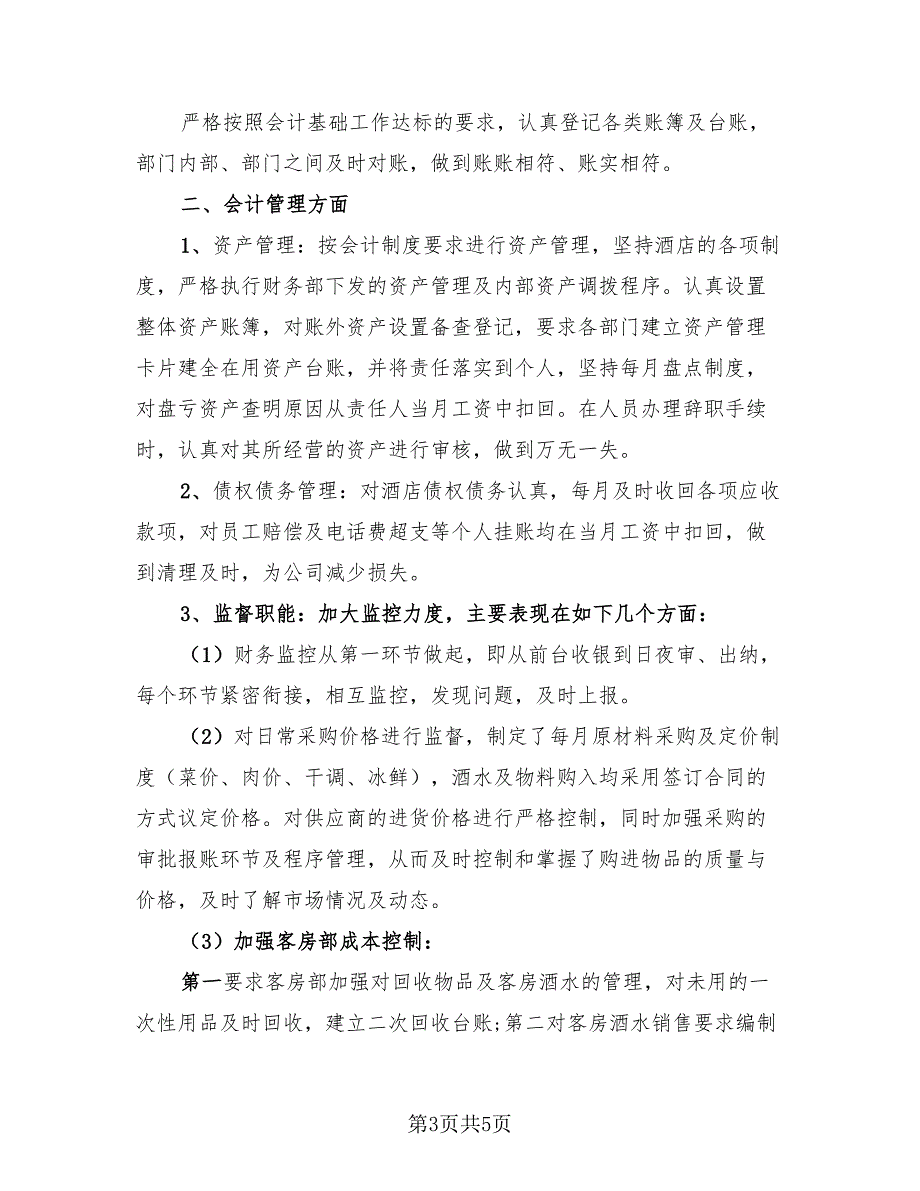 严格按照会计基础工作达标的要求，认真登记各类账簿及台账，
部门内部、部门之间及时对账，做到账账相符、账实相符。
二、会计管理方面
1、资产管理：按会计制度要求进行资产管理，坚持酒店的各项制
度，严格执行财务部下发的资产管理及内部资产调拨程序。认真设置
整体资产账簿，对账外资产设置备查登记，要求各部门建立资产管理
卡片建全在用资产台账，并将责任落实到个人，坚持每月盘点制度，
对盘亏资产查明原因从责任人当月工资中扣回。在人员办理辞职手续
时，认真对其所经营的资产进行审核，做到万无一失。
2、债权债务管理：对酒店债权债务认真，每月及时收回各项应收
款项，对员工赔偿及电话费超支等个人挂账均在当月工资中扣回，做
到清理及时，为公司减少损失。
3、监督职能：加大监控力度，主要表现在如下几个方面：
（1）财务监控从第一环节做起，即从前台收银到日夜审、出纳，
每个环节紧密衔接，相互监控，发现问题，及时上报。
（2）对日常采购价格进行监督，制定了每月原材料采购及定价制
度（菜价、肉价、干调、冰鲜），酒水及物料购入均采用签订合同的
方式议定价格。对供应商的进货价格进行严格控制，同时加强采购的
审批报账环节及程序管理，从而及时控制和掌握了购进物品的质量与
价格，及时了解市场情况及动态。
（3）加强客房部成本控制：
第一要求客房部加强对回收物品及客房酒水的管理，对未用的一
次性用品及时回收，建立二次回收台账;第二对客房酒水销售要求编制
第3页共5页